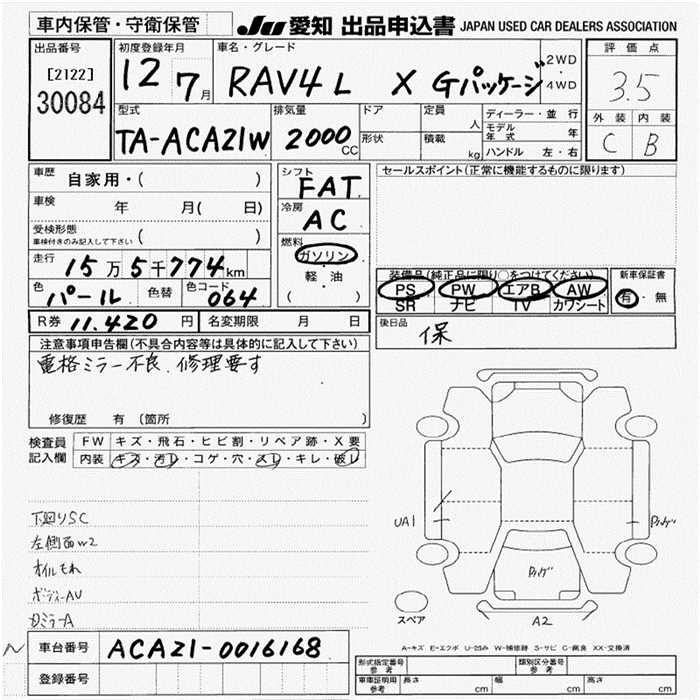 車内保管・守衛保管 JU 愛知 出品申込書 JAPAN USED CAR DEALERS ASSOCIATION
出品番号 初度登録年月 車名・グレード 評価点
[2122] 30084 12 7月 RAV4 L X Gパッケージ 2WD・4WD 3.5
型式 排気量 ドア 定員 人 ディーラー・並行 外装 内装
TA-ACA21W 2000CC 形状 積載 kg モデル年式 年 C B
ハンドル 左・右
車歴 自家用・( ) シフト FAT セールスポイント(正常に機能するものに限ります)
車検 年 月( 日) 冷房 AC
受検形態 ( )
車検付きのみ記入して下さい
燃料 ガソリン
走行 15万5千774km 軽・油 装備品(純正品に限り○をつけてください) 新車保証書
色 パール 色替 色コード 064 ( ) PS PW エアB AW 有・無
SR ナビ TV カワシート
R券 11.420円 名変期限 月 日 後日品 保
注意事項申告欄(不具合内容等は具体的に記入して下さい)
電格ミラー不良、修理要す
修復歴 有(箇所 )
検査員 FW キズ・飛石・ヒビ割・リペア跡・X要
記入欄 内装 キズ・汚レ・コゲ・穴・スレ・キレ・破レ
下廻りSC
左側面W2
オイルもれ
ボディーAU
UA1
A2
スペア
A-キズ E-エクボ U-凹み W-補修跡 S-サビ C-腐食 XX-交換済
車台番号 ACA21-0016168 形式指定番号 参考 類別区分番号 参考
登録番号 車庫証明用 参考 長さ cm 幅 cm 高さ cm